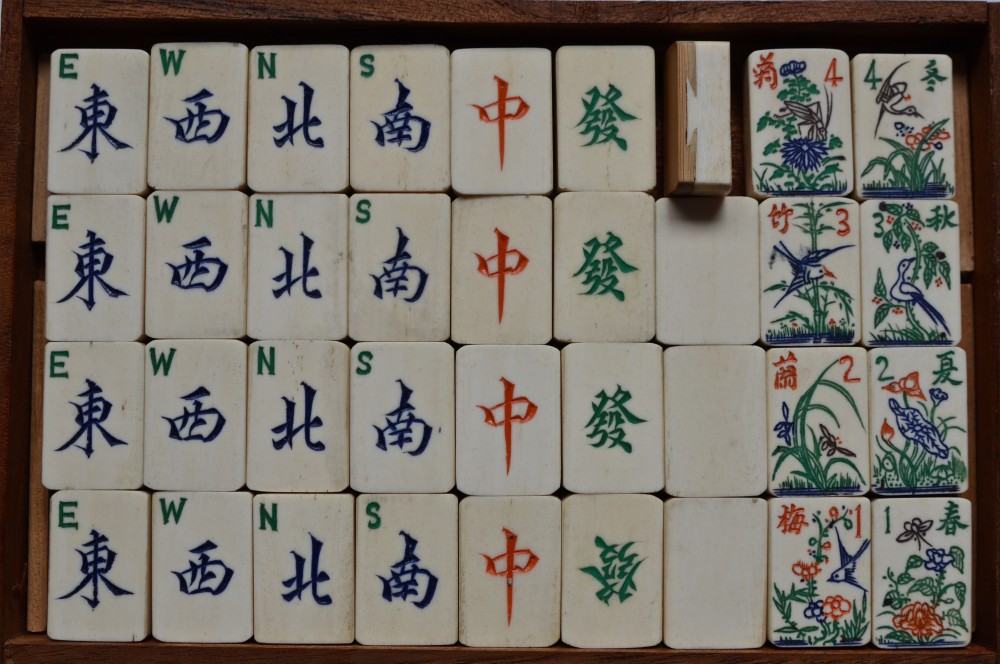 E 東 W 西 N 北 S 南 中 發 菊 4 4 冬
E 東 W 西 N 北 S 南 中 發 竹 3 3 秋
E 東 W 西 N 北 S 南 中 發 蘭 2 2 夏
E 東 W 西 N 北 S 南 中 發 梅 1 1 春